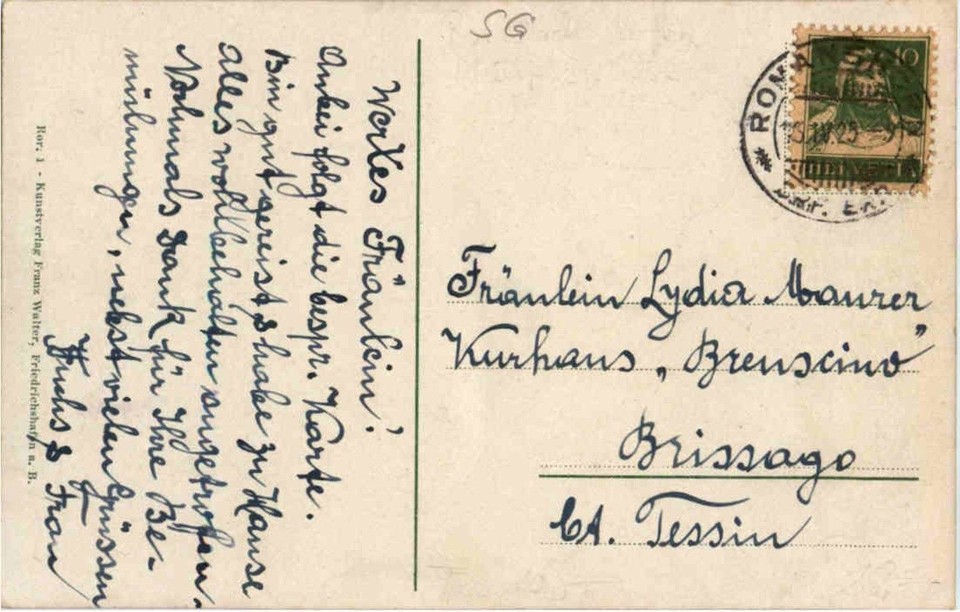 SG
10
ROMANSHORN
13.IV.25
Wertes Fräulein!
Anbei folgt die bespr. Karte.
Bin gut gereist & habe zu Hause
alles wohlbehalten angetroffen.
Nochmals Dank für Ihre Be-
mühungen, nebst vielen Grüssen
Fuchs & Frau
Fräulein Lydia Maurer
Kurhaus „Brenscino"
Brissago
Ct. Tessin
Ror. 1 - Kunstverlag Franz Walter, Friedrichshafen a. B.